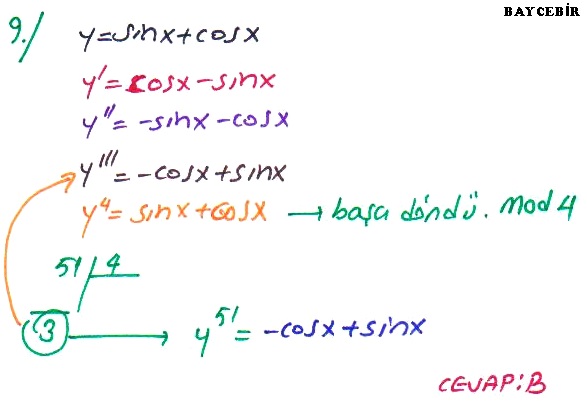 BAYCEBİR
9./ y=sinx+cosx
y'=cosx-sinx
y''=-sinx-cosx
y'''=-cosx+sinx
y⁴=sinx+cosx → başa döndü. mod 4
51 / 4
3 → y⁵¹=-cosx+sinx
CEVAP:B